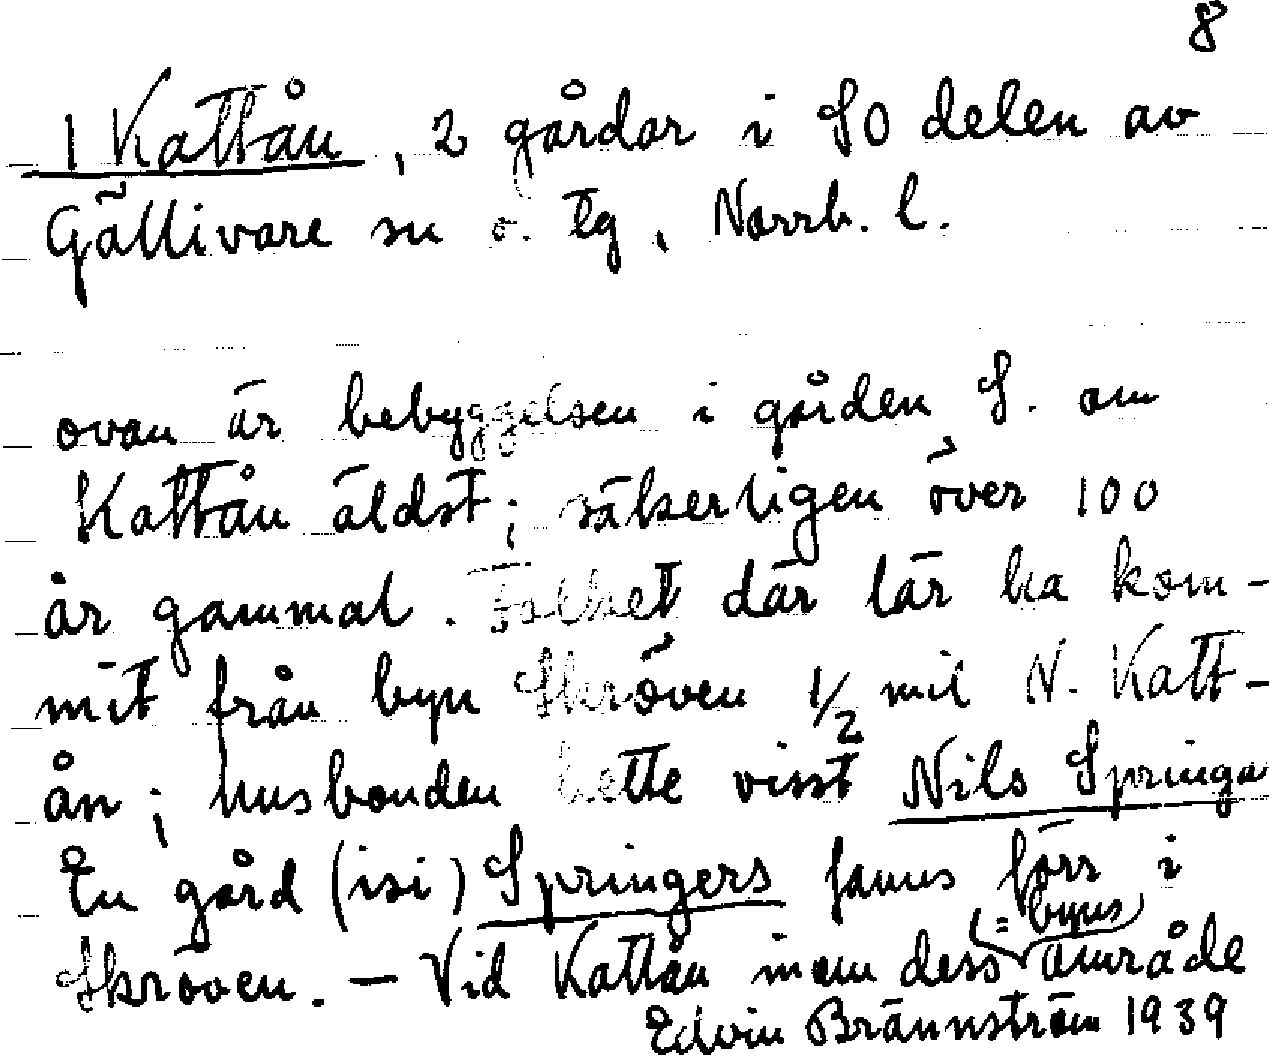 8
1 Kattån, 2 gårdar i SO delen av
Gällivare sn o. tg, Norrb. l.
ovan är bebyggelsen i gården S. om
Kattån äldst; säkerligen över 100
år gammal. Folket där lär ha kom-
mit från byn Skröven 1/2 mil N. Katt-
ån; husbonden hette visst Nils Springa
En gård (isi) Springers fanns förr i
(= byns)
Skröven. — Vid Kattån inom dess område
Edvin Brännström 1939